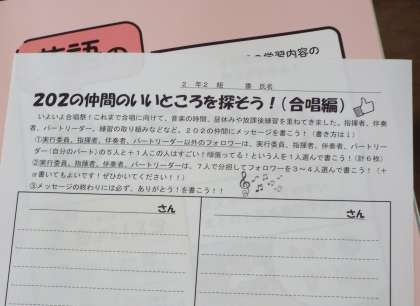 学習内容の
２年２組　番　氏名
202の仲間のいいところを探そう！（合唱編）
いよいよ合唱祭！これまで合唱に向けて、音楽の時間、昼休みや放課後練習を重ねてきました。指揮者、伴奏
者、パートリーダー、練習の取り組みなどなど。２０２の仲間にメッセージを書こう！（書き方は↓）
①実行委員、指揮者、伴奏者、パートリーダー以外のフォロワーは、実行委員、指揮者、伴奏者、パートリー
ダー（自分のパート）の５人と＋１人この人はすごい！頑張ってる！という人を１人選んで書こう！（計６枚）
②実行委員、指揮者、伴奏者、パートリーダーは、７人で分担してフォロワーを３～４人選んで書こう！（＋
α書いてもよいです！ぜひかいてください！！）
③メッセージの終わりには必ず、ありがとう！を書こう！！
さん
さん